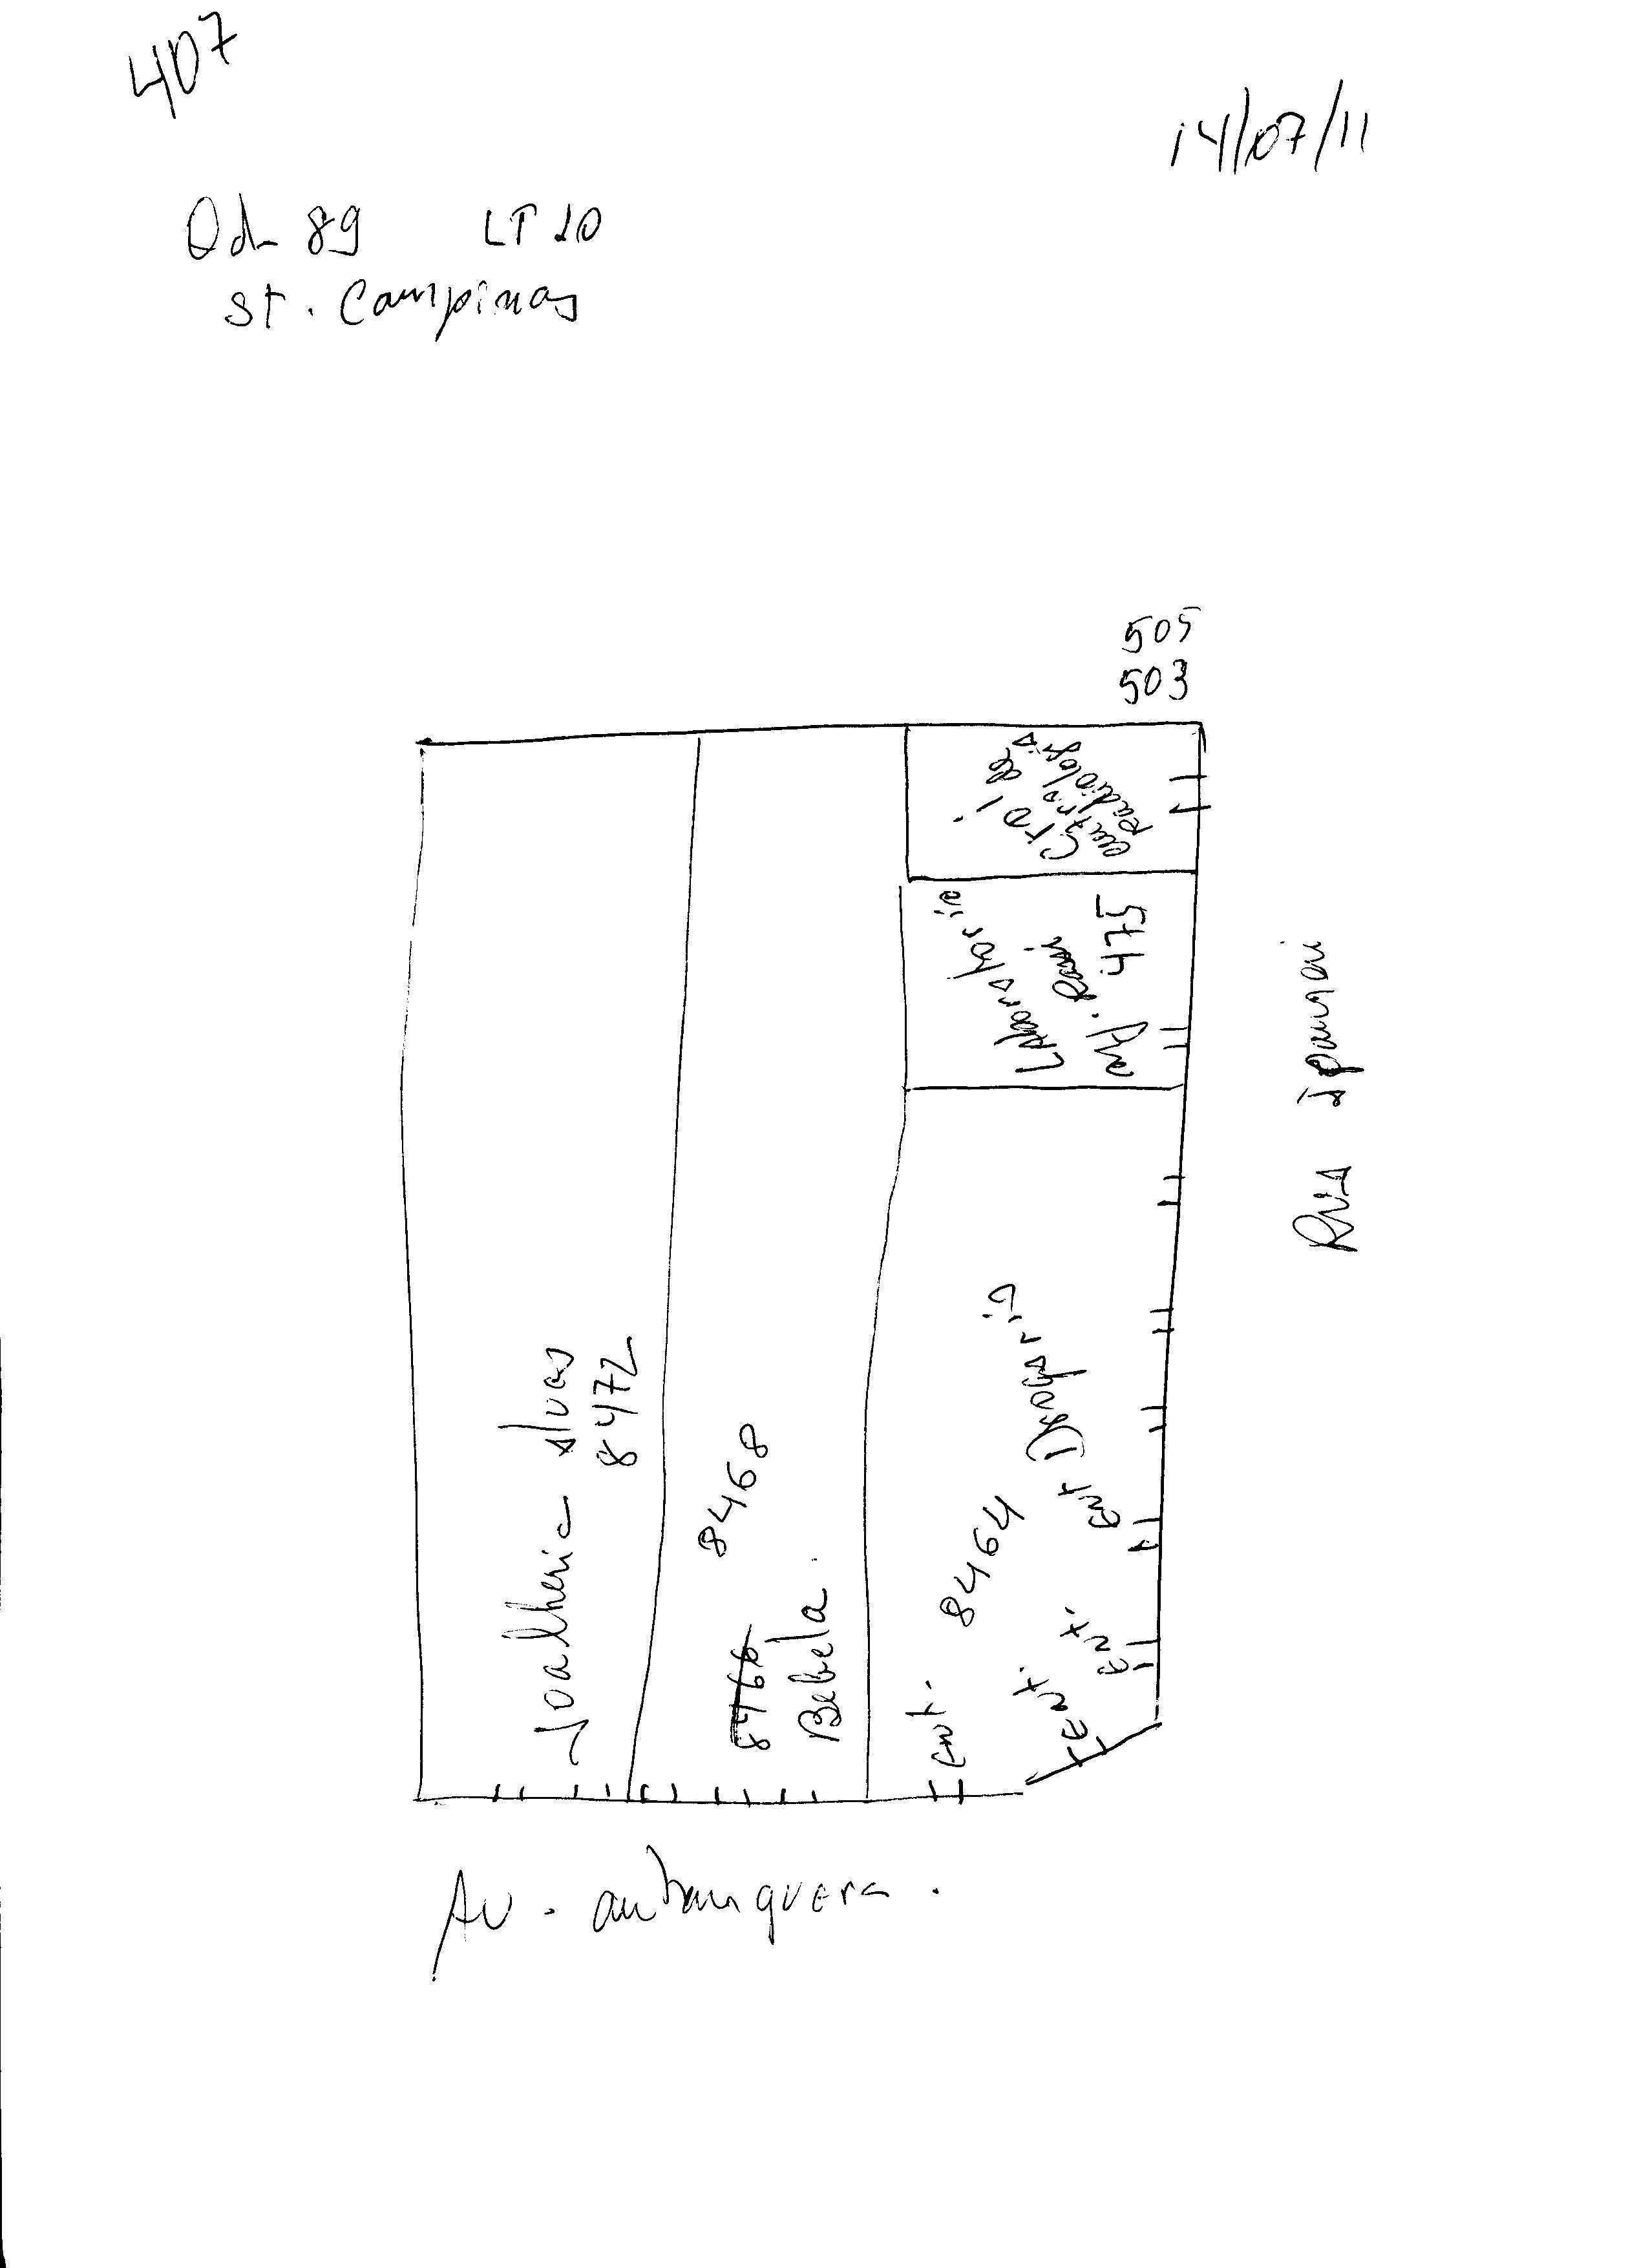 407
14/07/11
Qd- 89 LT 10
st. Campinas
505
503
CrOI
centro de
Radiologia
Laboratorio
475
Rua
Joalheria
8472
8468
8466
Bebela.
8464
Ent Drogaria
Ent.
Ent.
Ent.
Av. anhanguera.